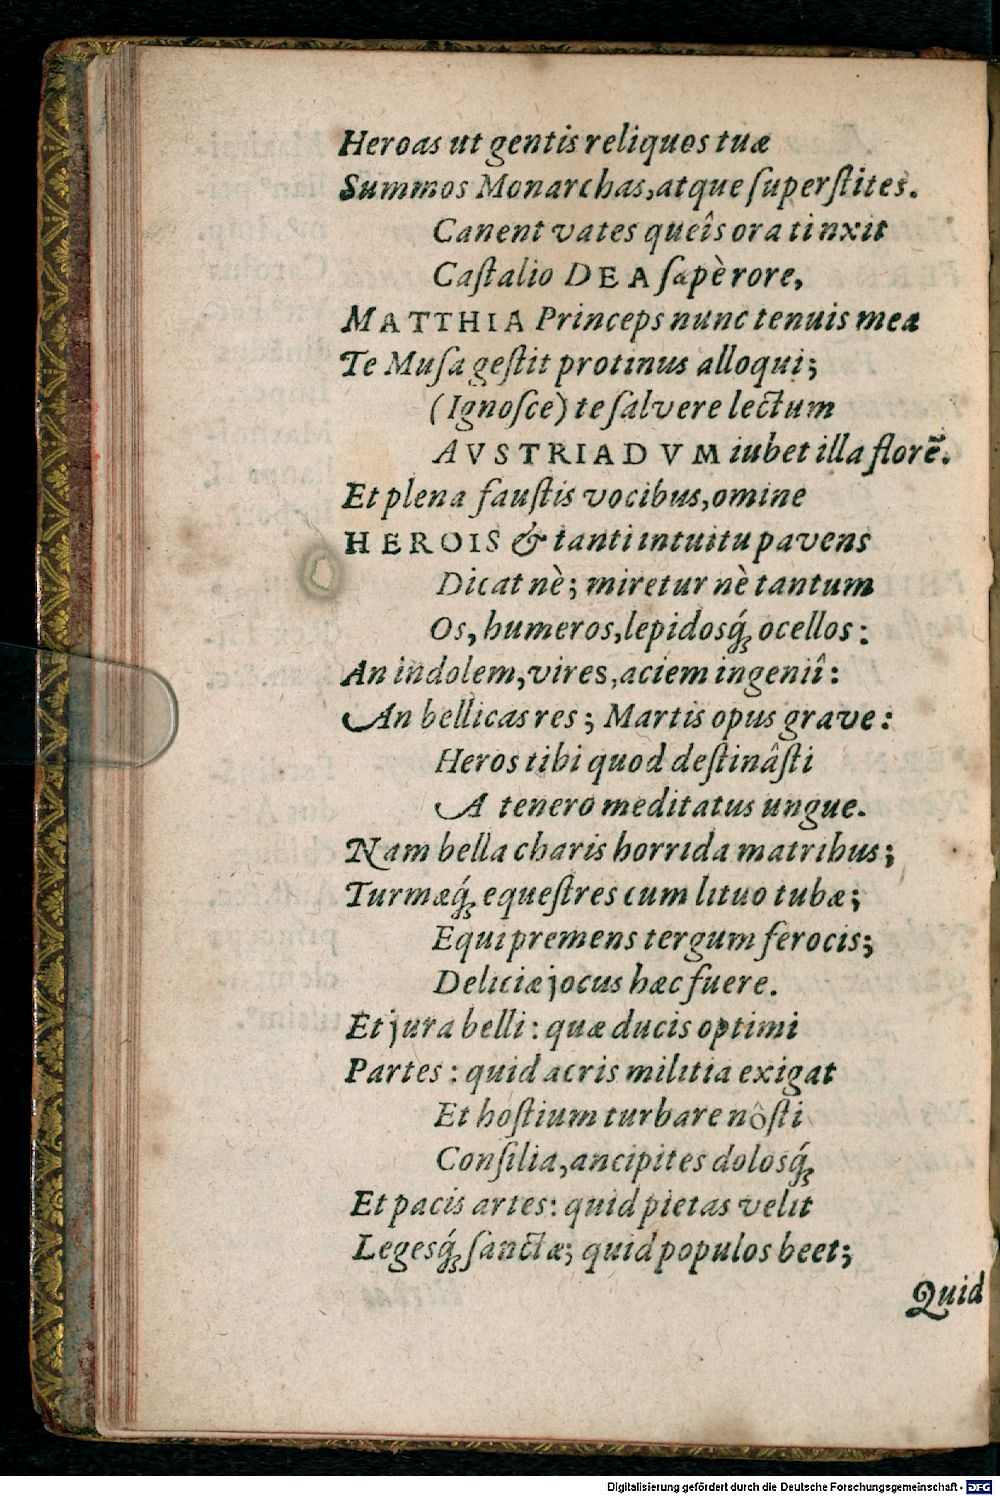 Heroas ut gentis reliquos tuæ
Summos Monarchas, atque ſuperſtites.
Canent vates queîs ora tinxit
Caſtalio DEA ſæpè rore,
MATTHIA Princeps nunc tenuis mea
Te Muſa geſtit protinus alloqui;
(Ignoſce) te ſalvere lectum
AVSTRIADVM iubet illa florē.
Et plena fauſtis vocibus, omine
HEROIS & tanti intuitu pavens
Dicat nè; miretur nè tantum
Os, humeros, lepidosq́; ocellos:
An indolem, vires, aciem ingeniî:
An bellicas res; Martis opus grave:
Heros tibi quod deſtinâſti
A tenero meditatus ungue.
Nam bella charis horrida matribus;
Turmæq́; equeſtres cum lituo tubæ;
Equi premens tergum ferocis;
Deliciæ jocus hæc fuere.
Et jura belli: quæ ducis optimi
Partes: quid acris militia exigat
Et hoſtium turbare nôſti
Conſilia, ancipites dolosq́;
Et pacis artes: quid pietas velit
Legesq́; ſanctæ; quid populos beet;
Quid
Digitalisierung gefördert durch die Deutsche Forschungsgemeinschaft - DFG